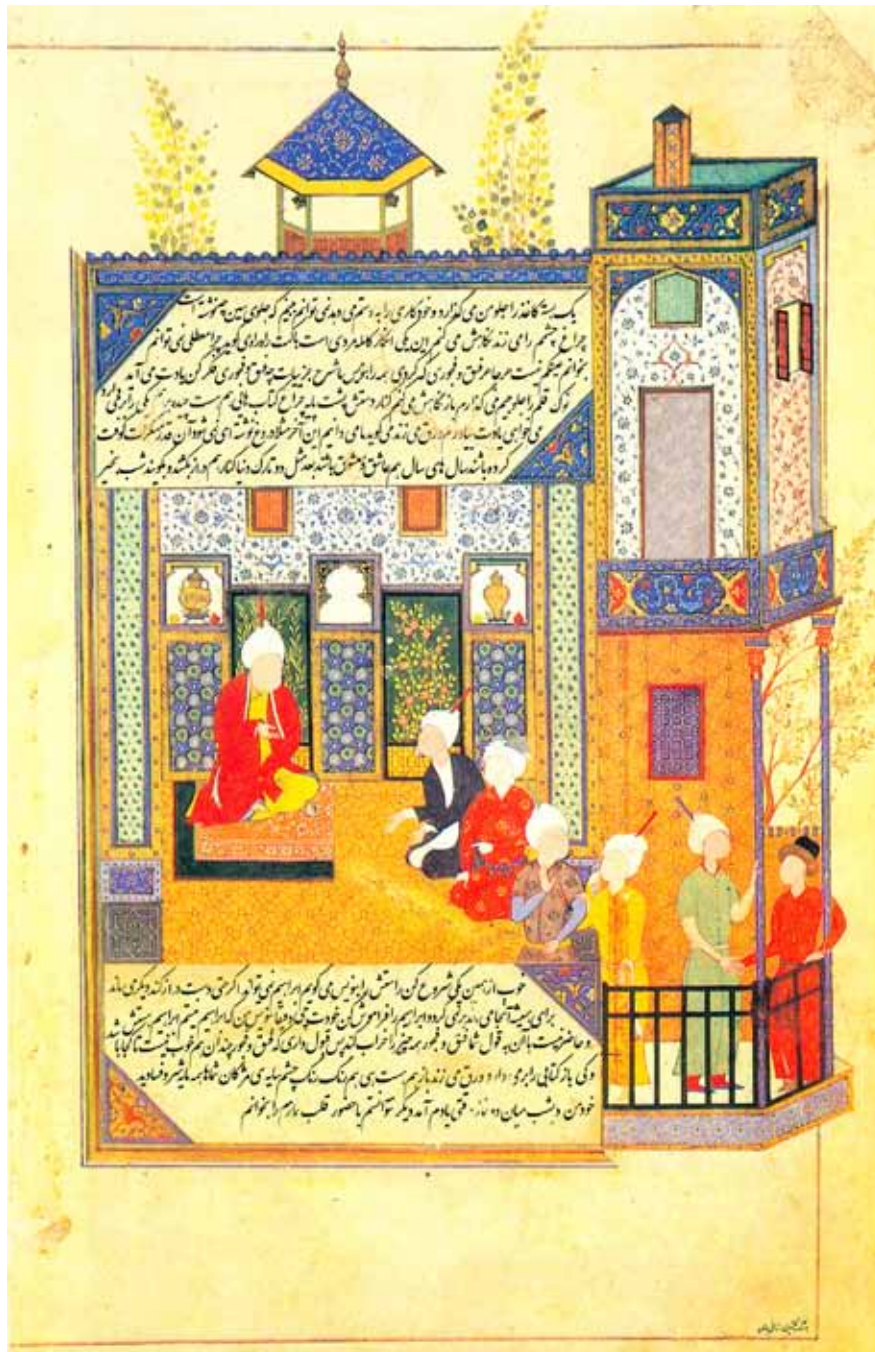 یک بسته کاغذ را جلو من می گذارد و خودکاری را به دستم می دهد نمی توانم ببینم که جلوی سین جیم نوشته است
چراغ چشم را می زند نگاهش می کنم این یکی انگار کامله مردی است با کت راه راه می گوید چرا معطلی نمی توانم
بخوانم میگوید نیست هر جا هر فسق و فجوری که کردی همه را بنویس با شرح جزییات چه فسق و فجوری فکر کن یادت می آید
نوک قلم را جلو چشم می گذارم باز نگاهش می کنم کنار دستش پشت پایه چراغ کتاب هایی هم ست چیده بر هم یکی را برمی دارد
می خواهی یادت بیاورم ورق می زند می گوید ما می دانیم این آخر مثلا دروغ نوشته ای نمی شود آن قدر
کرده باشند سال های سال هم عاشق و معشوق باشند بعد مثل دو تارک دنیا کنار هم دراز بکشند و بگویند شب بخیر
خوب از همین یکی شروع کن راستش را بنویس می گویم ابراهیم نمی تواند اگر حتی دست دراز کند دیگر می ماند
برای همیشه آنجا می ماند برنمی گردد ابراهیم را فراموش کن خودت چی
و حاضر نیست با این به قول شما فسق و فجور همه چیز را خراب کند پس قبول داری که فسق و فجور چندان هم خوب نیست تا کجا باشد
و کی باز کتابی را برمی دارد و ورق می زند باز هم ست بی هم رنگ رنگ چشم سایه ی مژگان شما همه مایه شر و فسادید
خود من دیشب میان دو نماز وقتی یادم آمد دیگر نتوانستم با حضور قلب نمازم را بخوانم